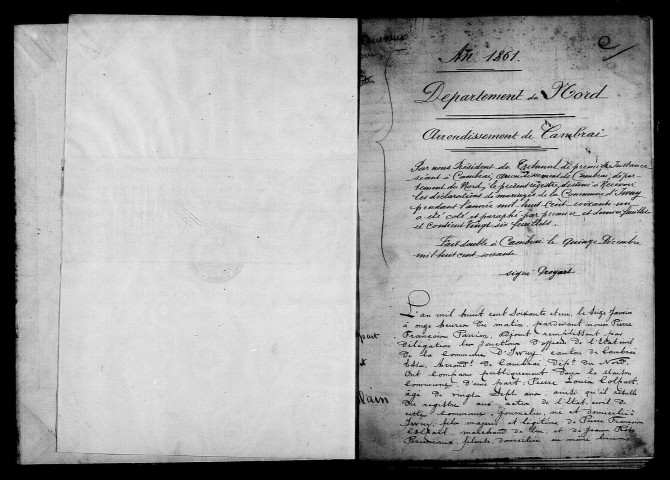 An 1861.
Département du Nord
Arrondissement de Cambrai
Par nous Président du Tribunal de première Instance
séant à Cambrai, arrondissement de Cambrai, dépar-
tement du Nord, le présent registre destiné à Recevoir
les déclarations de mariages de la Commune d'Iwuy
pendant l'année mil huit cent soixante un
a été coté et paraphé par premier et dernier feuillet
et contient vingt six feuillets.
Fait double à Cambrai le quinze Décembre
mil huit cent soixante
signé
L'an mil huit cent soixante et un, le seize Janvier
à onze heures du matin, pardevant nous Pierre
François adjoint remplissant par
délégation les fonctions d'officier de l'Etat civil
de la commune d'Iwuy, canton de Cambrai
Est, Arrond.t de Cambrai, Dép.t du Nord
Ont comparu publiquement dans la Maison
commune d'une part, Pierre Louis Colpart
âgé de vingt sept ans, ainsi qu'il résulte
du registre aux actes de l'Etat civil de
cette commune, journalier, né et domicilié à
Iwuy, fils majeur et légitime de Pierre François
Colpart, marchand de et de Jeanne
domiciliés au même lieu
part
et
lain